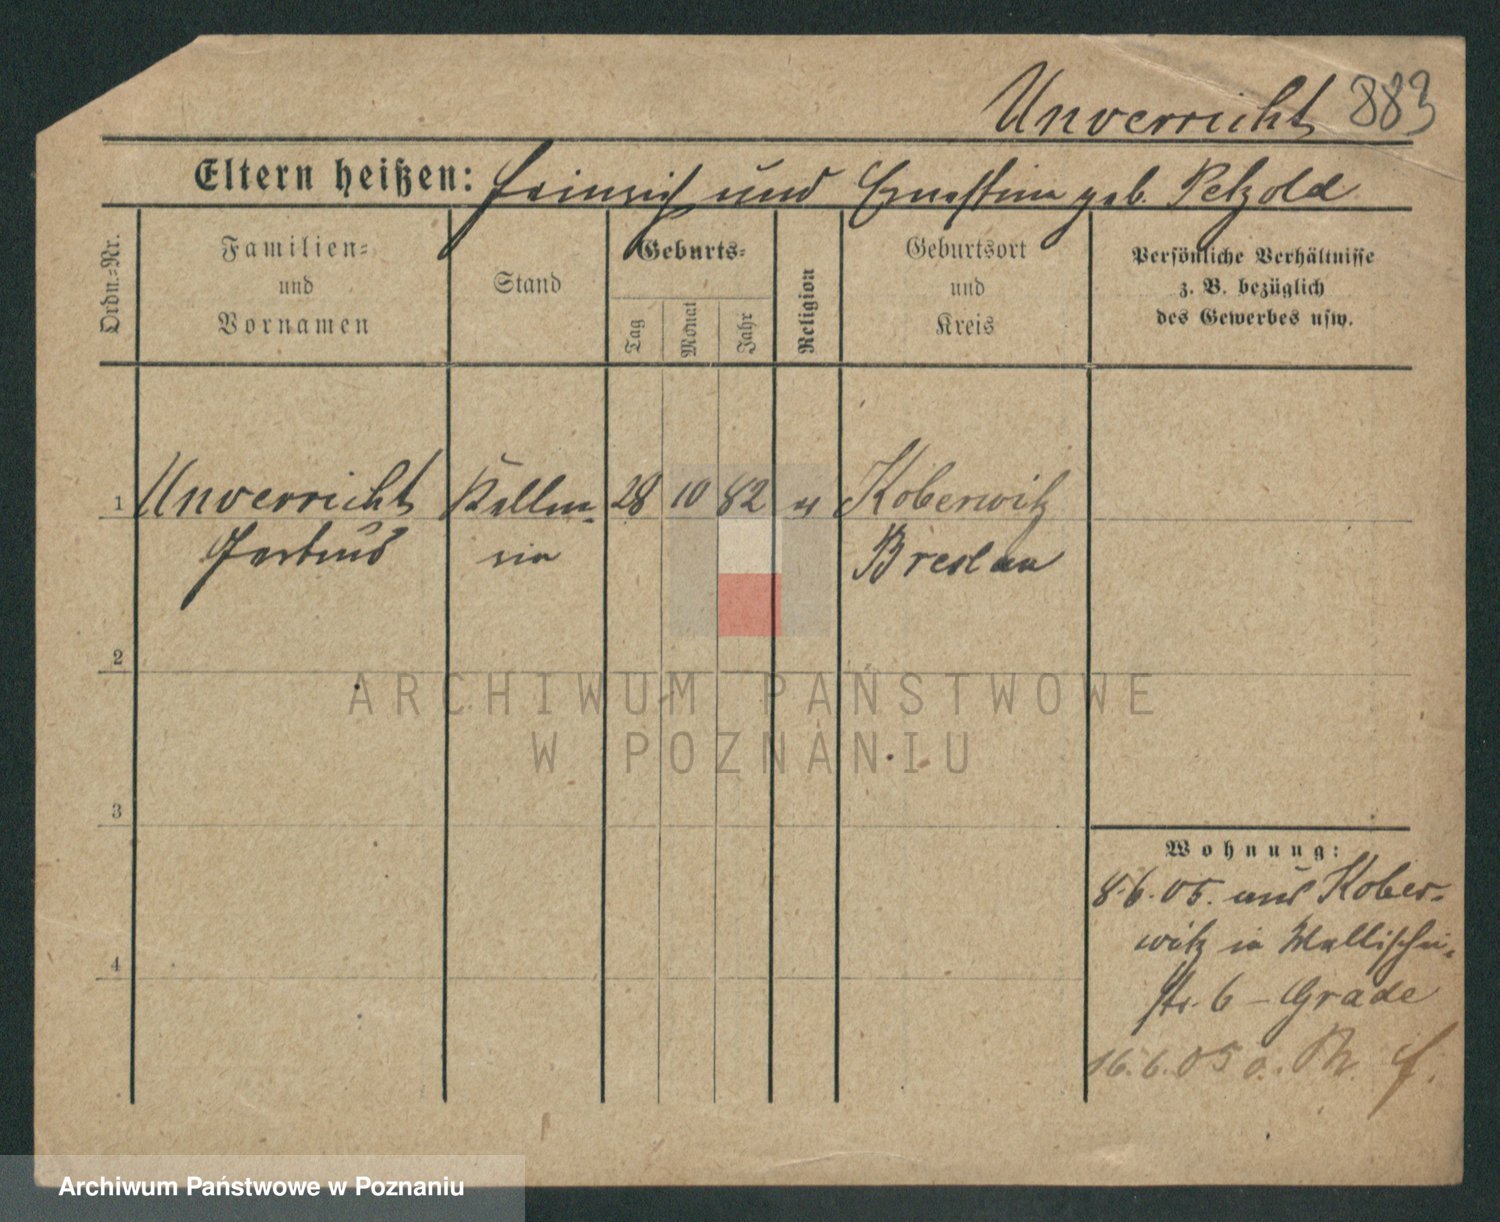 Unverricht 883
Eltern heißen: Heinrich und Ernestine geb. Petzold
Ordn.=Nr.
Familien=
und
Vornamen
Stand
Geburts=
Tag
Monat
Jahr
Religion
Geburtsort
und
Kreis
Persönliche Verhältnisse
z. B. bezüglich
des Gewerbes usw.
1 Unverricht Kellne= 28 10 82 Koberwitz
rin Breslau
2
3
4
Wohnung:
8.6.05. aus Kober=
witz in Wallischei=
str. 6 – Grade
16.6.05
ARCHIWUM PAŃSTWOWE
W POZNANIU
Archiwum Państwowe w Poznaniu